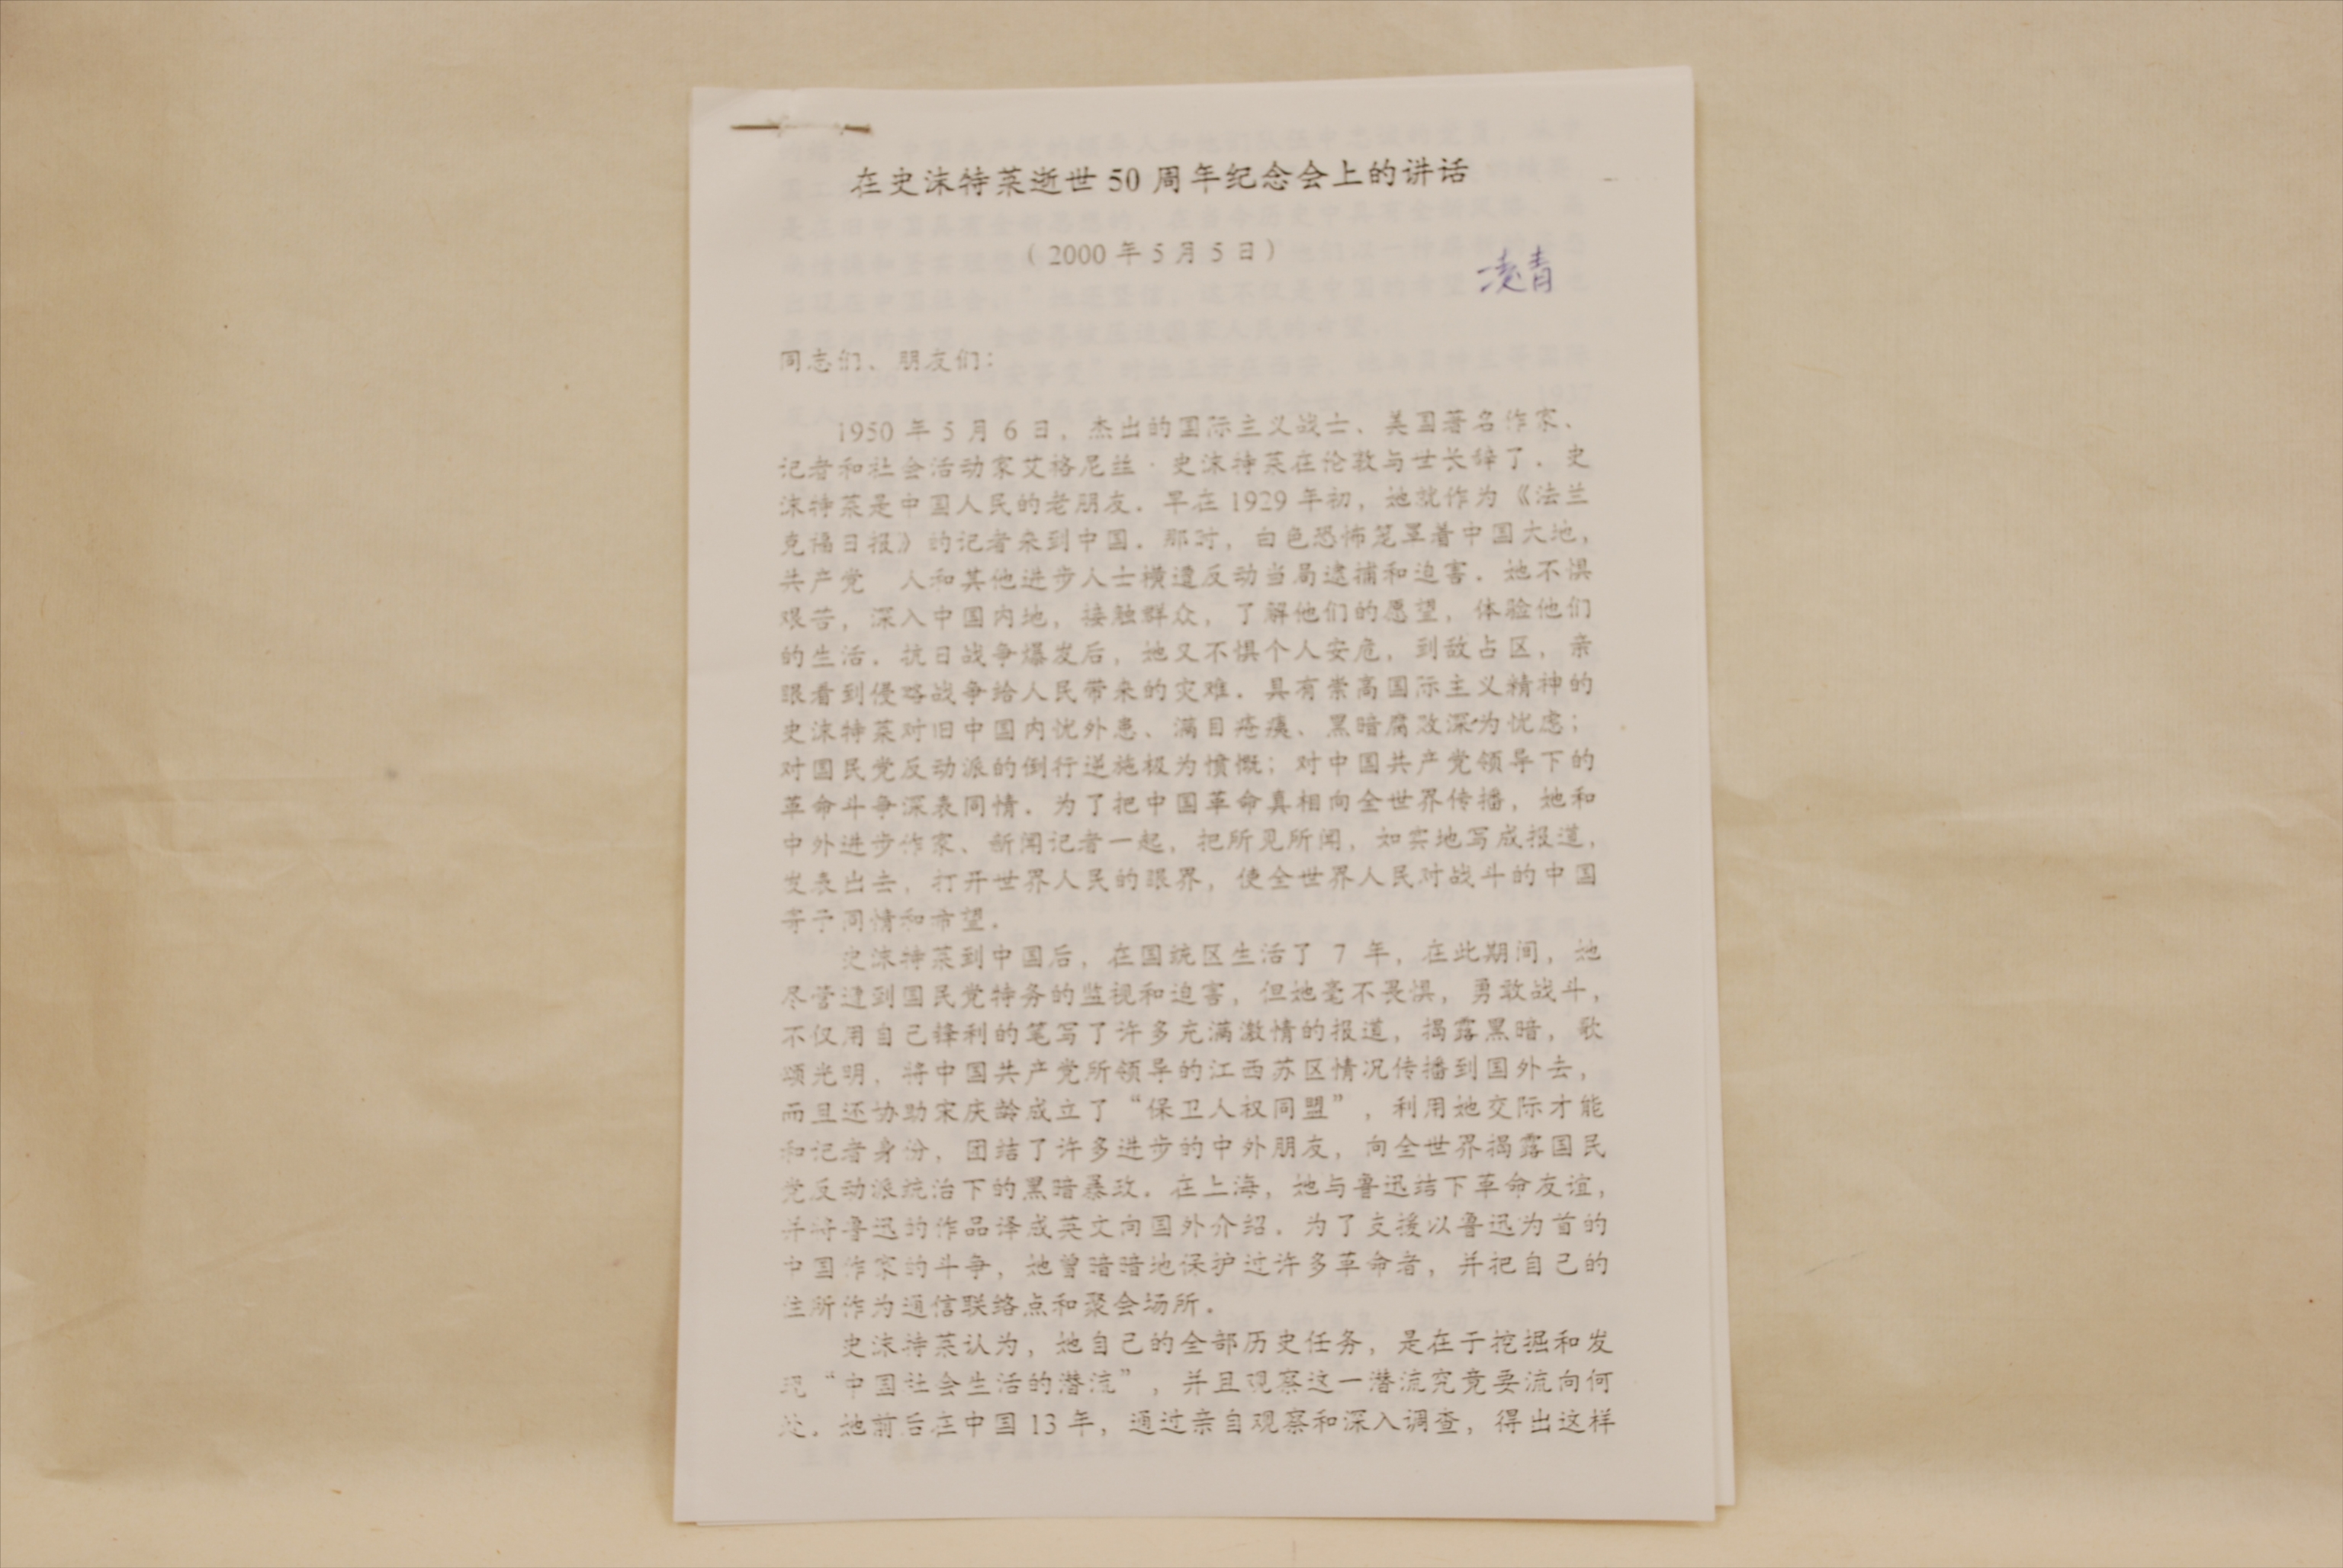 在史沫特莱逝世50周年纪念会上的讲话
（2000年5月5日）
凌青
同志们、朋友们：
1950年5月6日，杰出的国际主义战士、美国著名作家、
记者和社会活动家艾格尼丝·史沫特莱在伦敦与世长辞了．史
沫特莱是中国人民的老朋友．早在1929年初，她就作为《法兰
克福日报》的记者来到中国．那时，白色恐怖笼罩着中国大地，
共产党 人和其他进步人士横遭反动当局逮捕和迫害．她不惧
艰苦，深入中国内地，接触群众，了解他们的愿望，体验他们
的生活．抗日战争爆发后，她又不惧个人安危，到敌占区，亲
眼看到侵略战争给人民带来的灾难．具有崇高国际主义精神的
史沫特莱对旧中国内忧外患、满目疮痍、黑暗腐败深为忧虑；
对国民党反动派的倒行逆施极为愤慨；对中国共产党领导下的
革命斗争深表同情．为了把中国革命真相向全世界传播，她和
中外进步作家、新闻记者一起，把所见所闻，如实地写成报道，
发表出去，打开世界人民的眼界，使全世界人民对战斗的中国
寄予同情和希望．
史沫特莱到中国后，在国统区生活了 7 年，在此期间，她
尽管遭到国民党特务的监视和迫害，但她毫不畏惧，勇敢战斗，
不仅用自己锋利的笔写了许多充满激情的报道，揭露黑暗，歌
颂光明，将中国共产党所领导的江西苏区情况传播到国外去，
而且还协助宋庆龄成立了“保卫人权同盟”，利用她交际才能
和记者身份，团结了许多进步的中外朋友，向全世界揭露国民
党反动派统治下的黑暗暴政．在上海，她与鲁迅结下革命友谊，
并将鲁迅的作品译成英文向国外介绍．为了支援以鲁迅为首的
中国作家的斗争，她曾暗暗地保护过许多革命者，并把自己的
住所作为通信联络点和聚会场所．
史沫特莱认为，她自己的全部历史任务，是在于挖掘和发
现“中国社会生活的潜流”，并且观察这一潜流究竟要流向何
处．她前后在中国13年，通过亲自观察和深入调查，得出这样